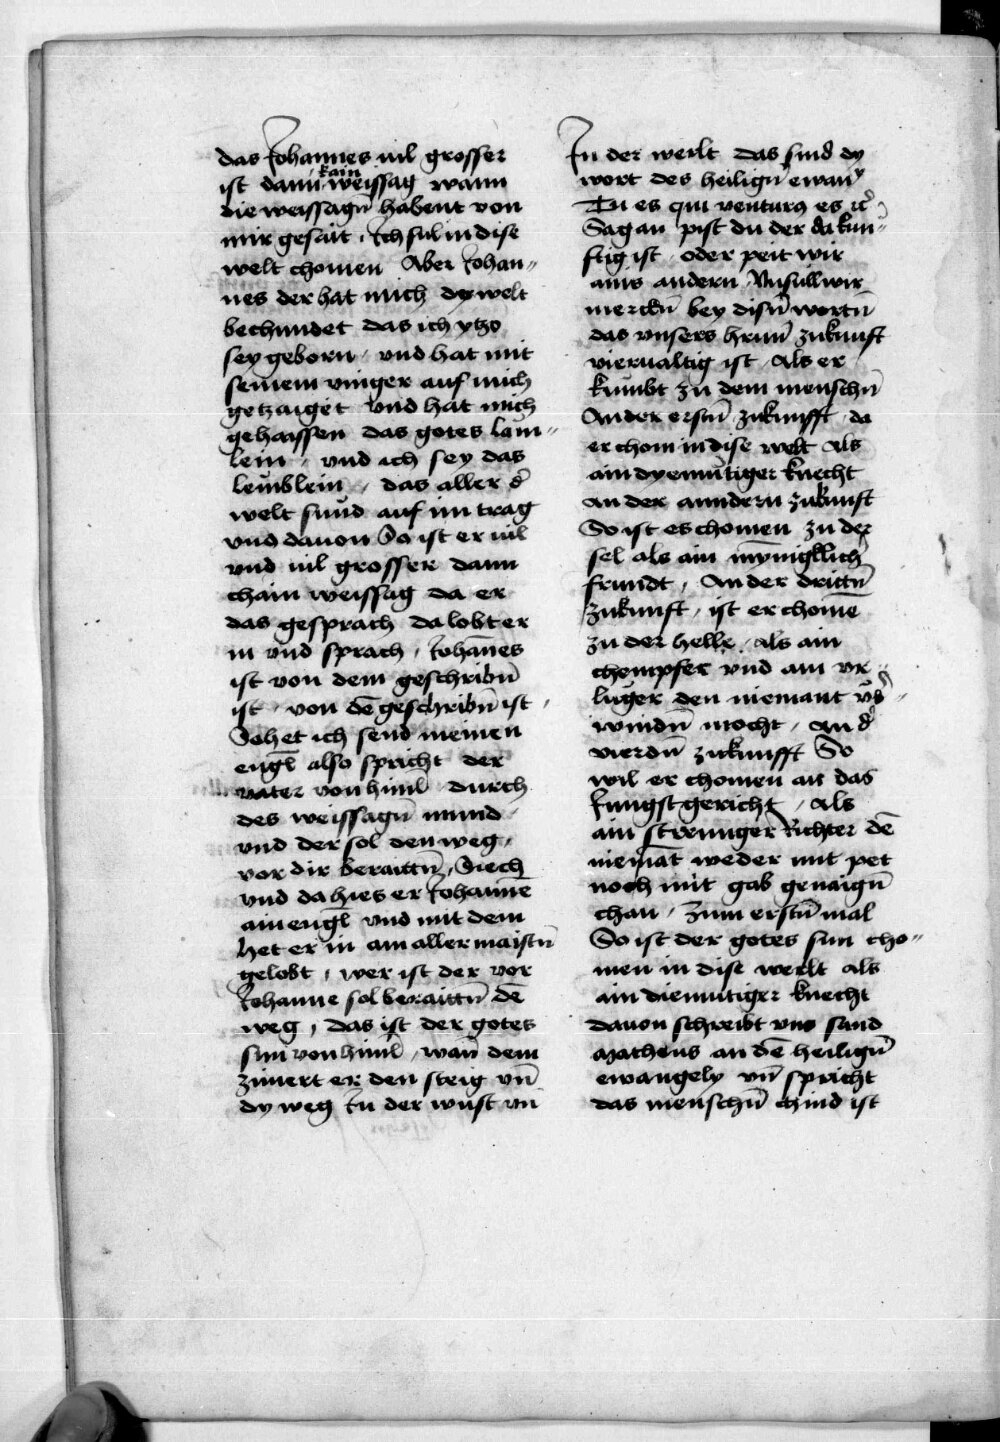 das Johannes vil grosser
ist dann kain weissag wann
die weissagn̄ habent von
mir gesait, Ich sul in dise
welt chomen Aber Johan-
nes der hat mich dy welt
bechundet das ich ytzo
sey geborn, vnd hat mit
seinem vinger auf mich
getzaiget vnd hat mich
gehaissen das gotes lem-
lein, vnd ich sey das
lemblein, das aller d̓
welt sund auf im trag
vnd dauon So ist er vil
vnd vil grosser dann
chain weissag da er
das gesprach da lobt er
in vnd sprach, Johānes
ist von dem geschribn̄
ist, von dē geschribn̄ ist,
Sehet ich send meinen
engl also spricht der
vater von himl durch
des weissagn̄ mund
vnd der sol den weg,
vor dir beraittn̄, Siech
vnd da hies er Johanne
ain engl vnd mit dem
het er in am aller maistn̄
gelobt, wer ist der vor
Johanne sol beraittn̄ dē
weg, das ist der gotes
sun von himl, wan̄ dem
zimert er den steig vn̄
dy weg In der wust vn̄
In der werlt das sind dy
wort des heilign̄ ewany
Tu es qui venturus es ⁊c̓
Sag an pist du der da kun-
ftig ist, oder peit wir
ains andern Nu sull wir
merckn̄ bey disn̄ wortn̄
das vnsers hrnn̄ zukunft
vierualtig ist, Als er
kumbt zu dem menschn̄
An der erstn̄ zukunfft, da
er chom in dise welt als
ain dyemütiger knecht
an der anndern zukunft
So ist es chomen zu der
sel als ain mynigklich̓
frundt, An der drittn̄
zukunft, ist er chomē
zu der helle, als ain
chempfer vnd ain vr-
luger den niemant vb̓-
windn̄ mocht, an d̓
vierdn̄ zukunfft So
wil er chomen an das
Jungst gericht, Als
ain strennger Richter dē
niemāt weder mit pet
noch mit gab genaign̄
chan, Zum erstn̄ mal
So ist der gotes sun cho-
men in dise werlt als
ain diemutiger knecht
dauon schreibt vns sand
Matheus an dē heilign̄
ewangely vn̄ spricht
das menschn̄ chind ist